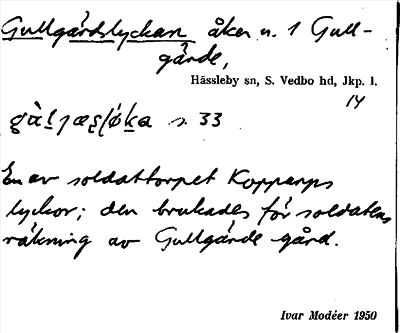 Gullgårdslyckan åker n. 1 Gull-
gårde,
Hässleby sn, S. Vedbo hd, Jkp. l.
14
s. 33
En av soldattorpet Kopparps
lyckor; den brukades för soldatens
räkning av Gullgårde gård.
Ivar Modéer 1950